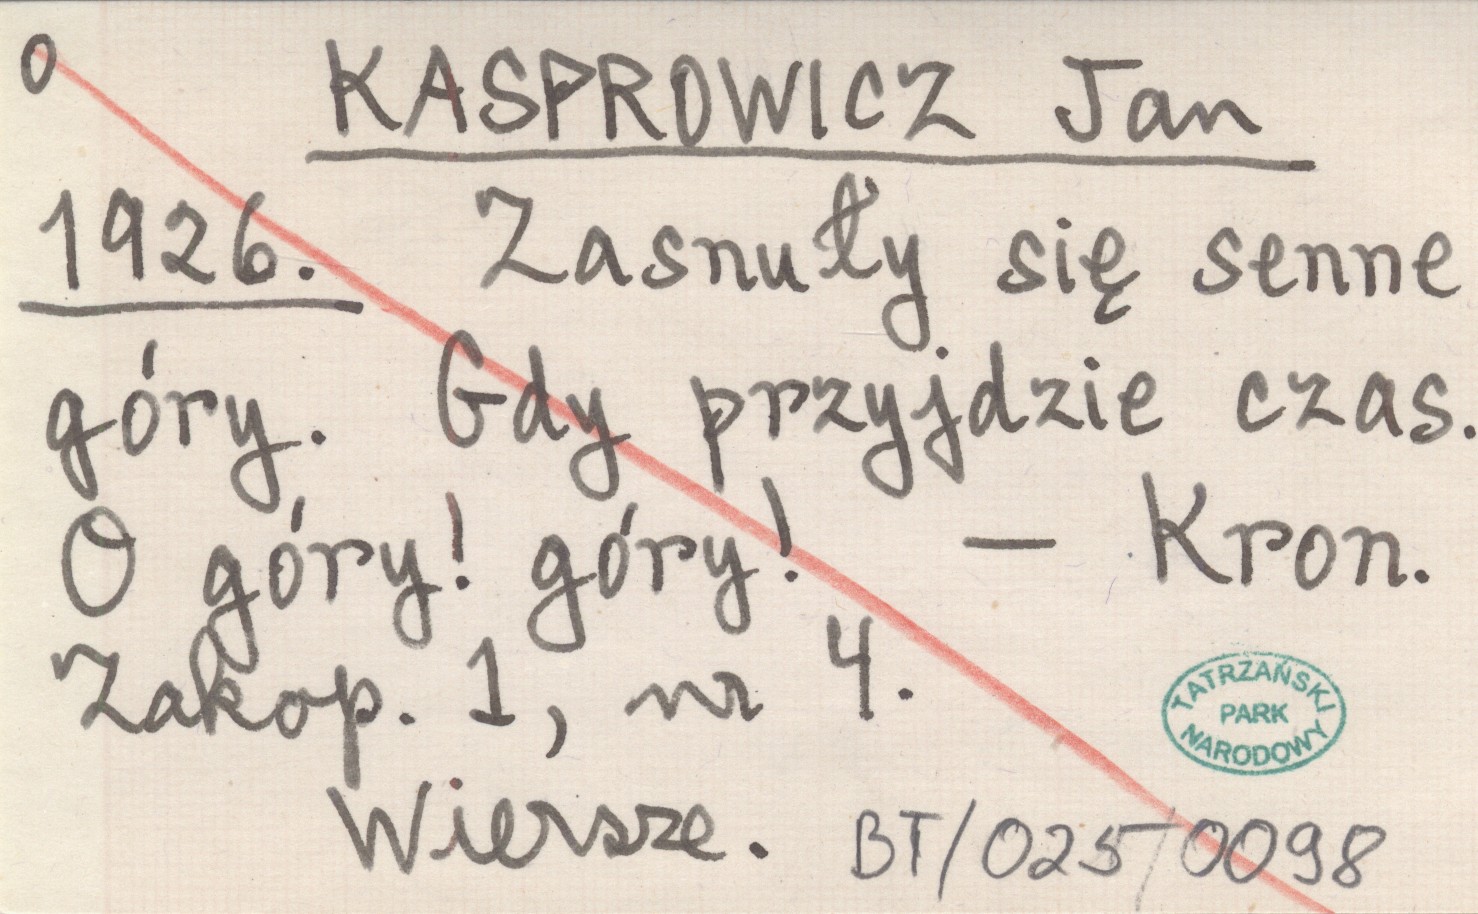 O KASPROWICZ Jan
1926. Zasnuły się senne
góry. Gdy przyjdzie czas.
O góry! góry! — Kron.
Zakop. 1, nr 4.
Wiersze.
TATRZAŃSKI
PARK
NARODOWY
BT/025/0098